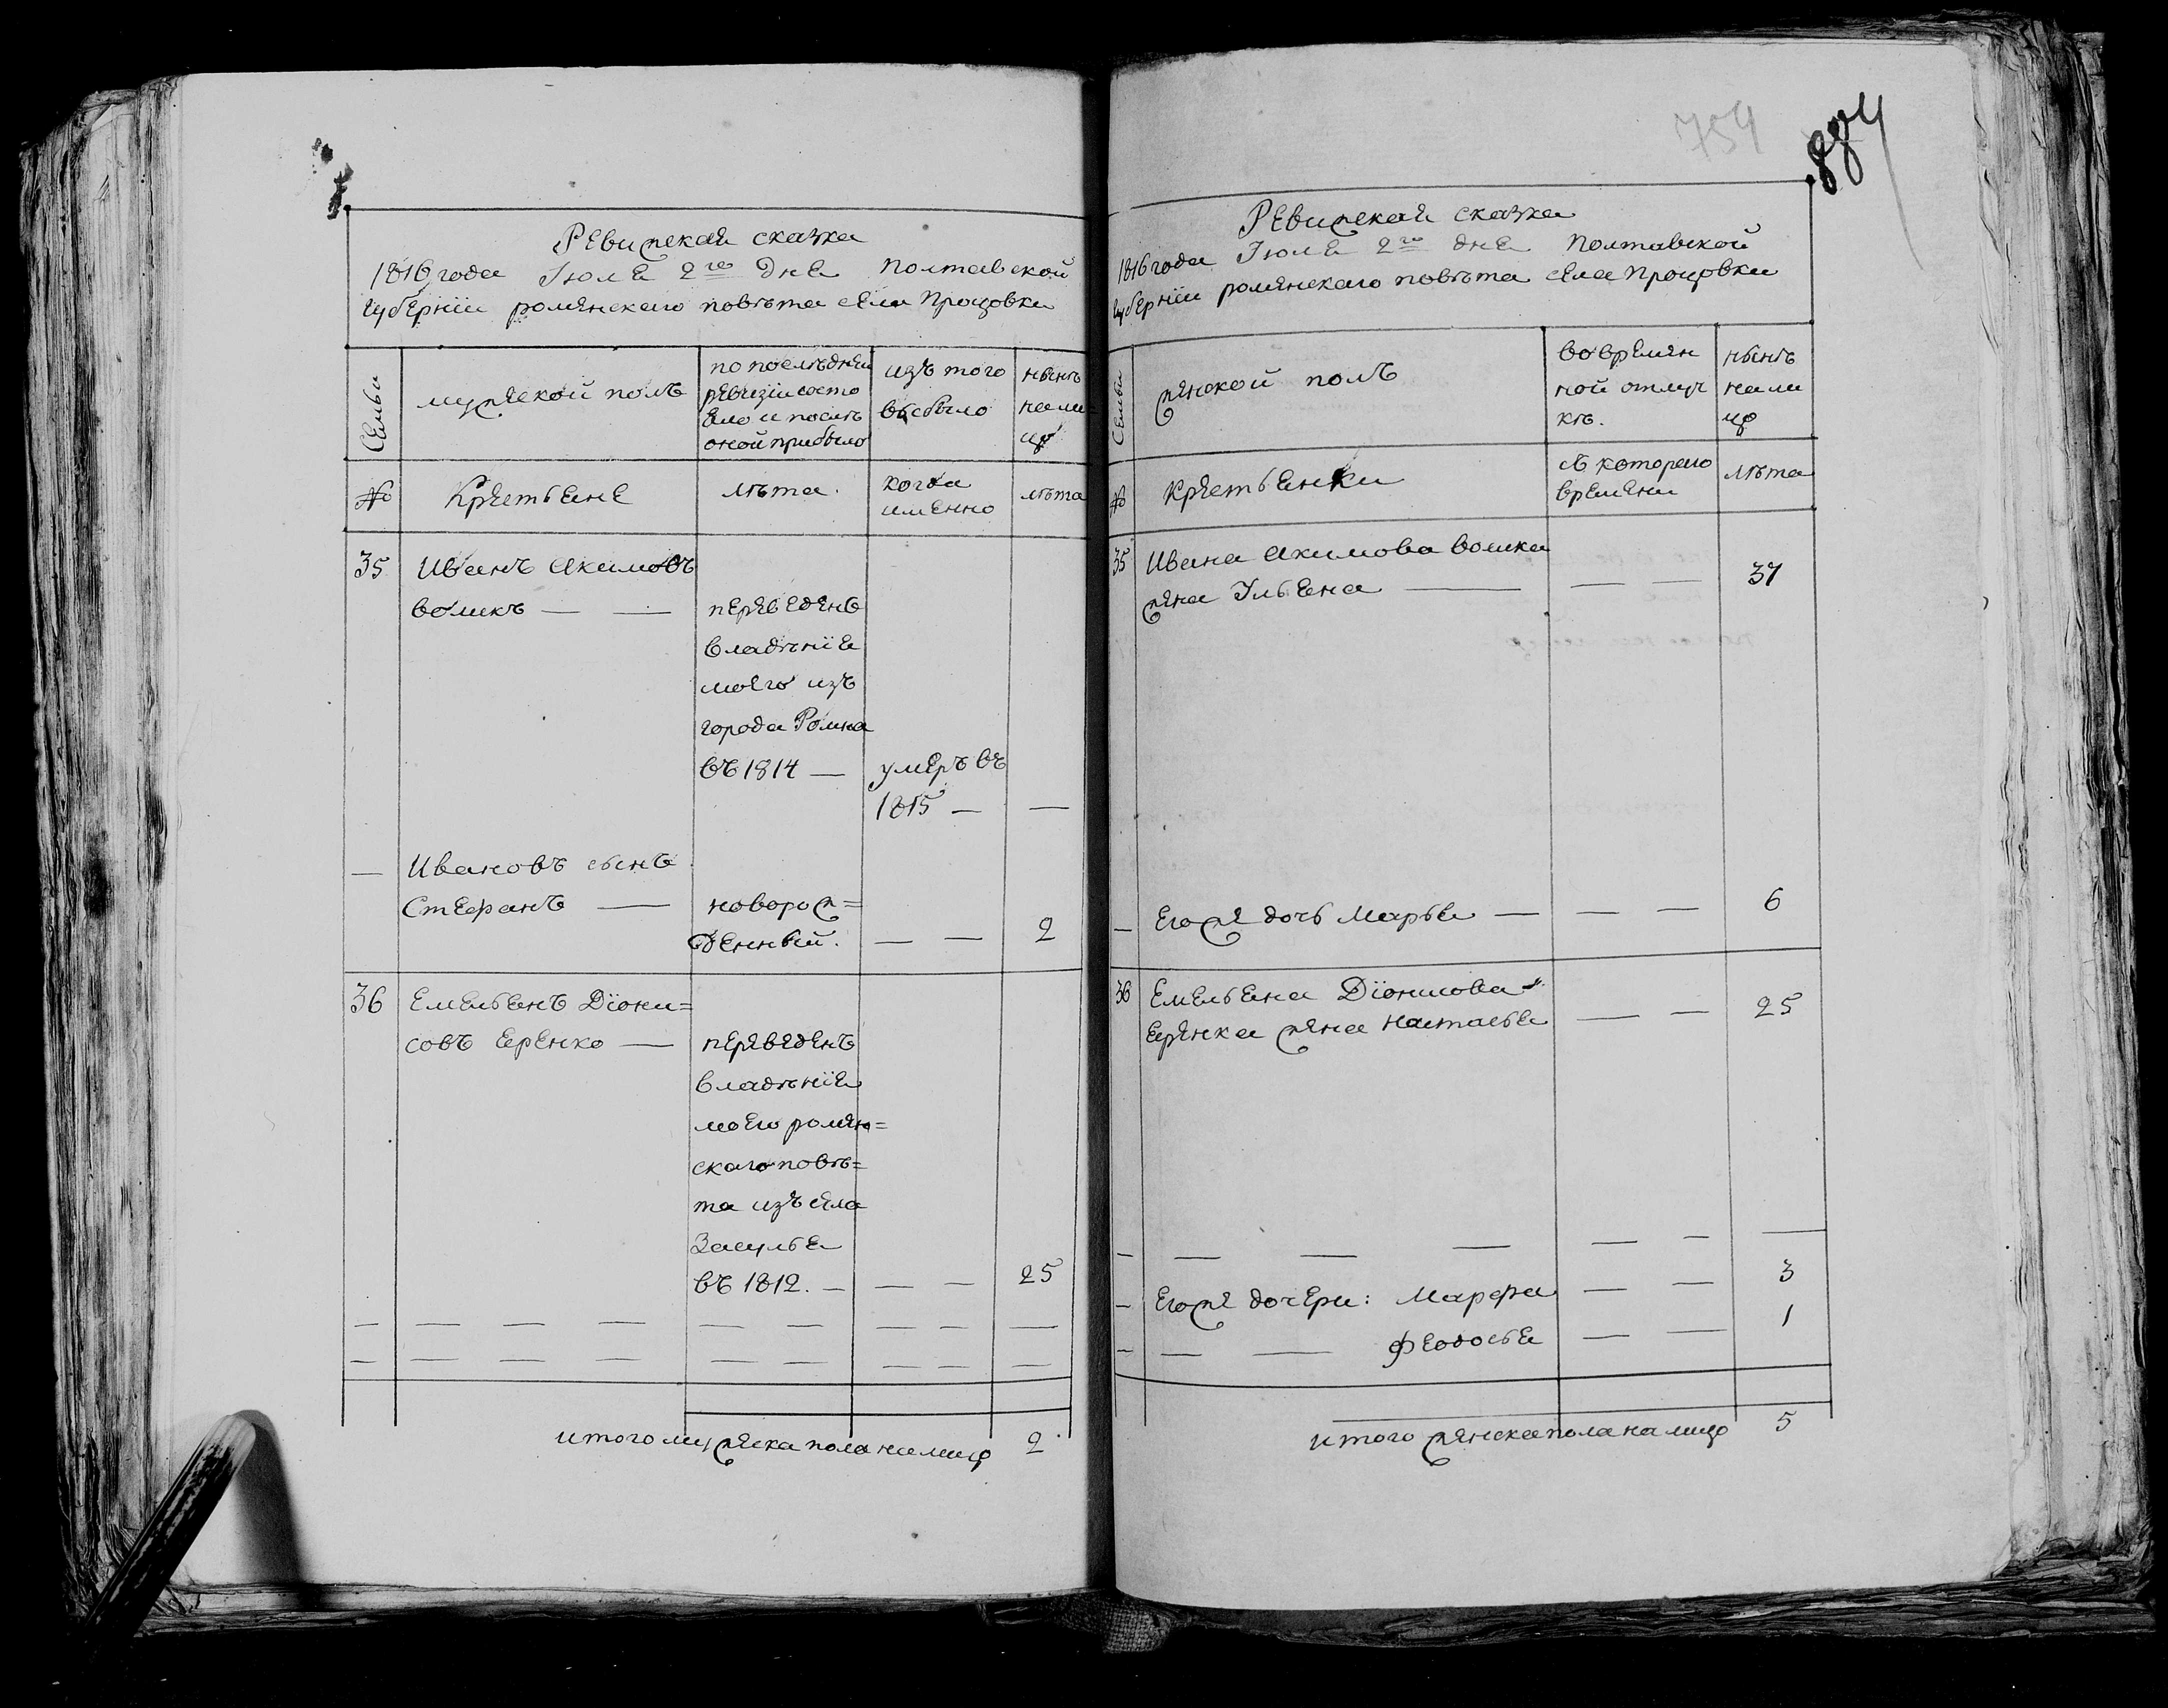 Ревижская сказка
1816 года Іюля 2го дня Полтавской
губерніи роменскаго повѣта села Процовки
Семьи
мужеской полъ
по послѣдней
ревизіи состо
яло и послѣ
оной прибыло
изъ того
выбыло
нынѣ
на ли
цо
№
Крестьяне
лѣта.
когда
именно
лѣта
35
Иванъ Акимовъ
воликъ — —
переведенъ
владѣніе
моего изъ
города Ромна
въ 1814 —
умеръ въ
1815 — —
— Ивановъ сынъ
Стефанъ —
новорож=
денный. — — 2
36
Емельянъ Діони=
совъ Еренко —
переведенъ
владѣніе
моего ромен=
скаго повѣ=
та изъ села
Засулья
въ 1812. — — — 25
итого мужеска пола налицо 2
754
884
Ревижская сказка
1816 года Іюля 2го дня Полтавской
губерніи роменскаго повѣта села Процовки
Семьи
женской полъ
во времен
ной отлуч
кѣ.
нынѣ
на ли
цо
№
Крестьянки
съ котораго
времени
лѣта
35
Ивана Акимова волика
жена Ульяна — — — 37
— Его же дочь Марья — — — 6
36
Емельяна Діонисова
Еренка жена Настасья — — 25
— Его же дочери: Марфа — — 3
— — — Феодосья — — 1
итого женска пола налицо 5